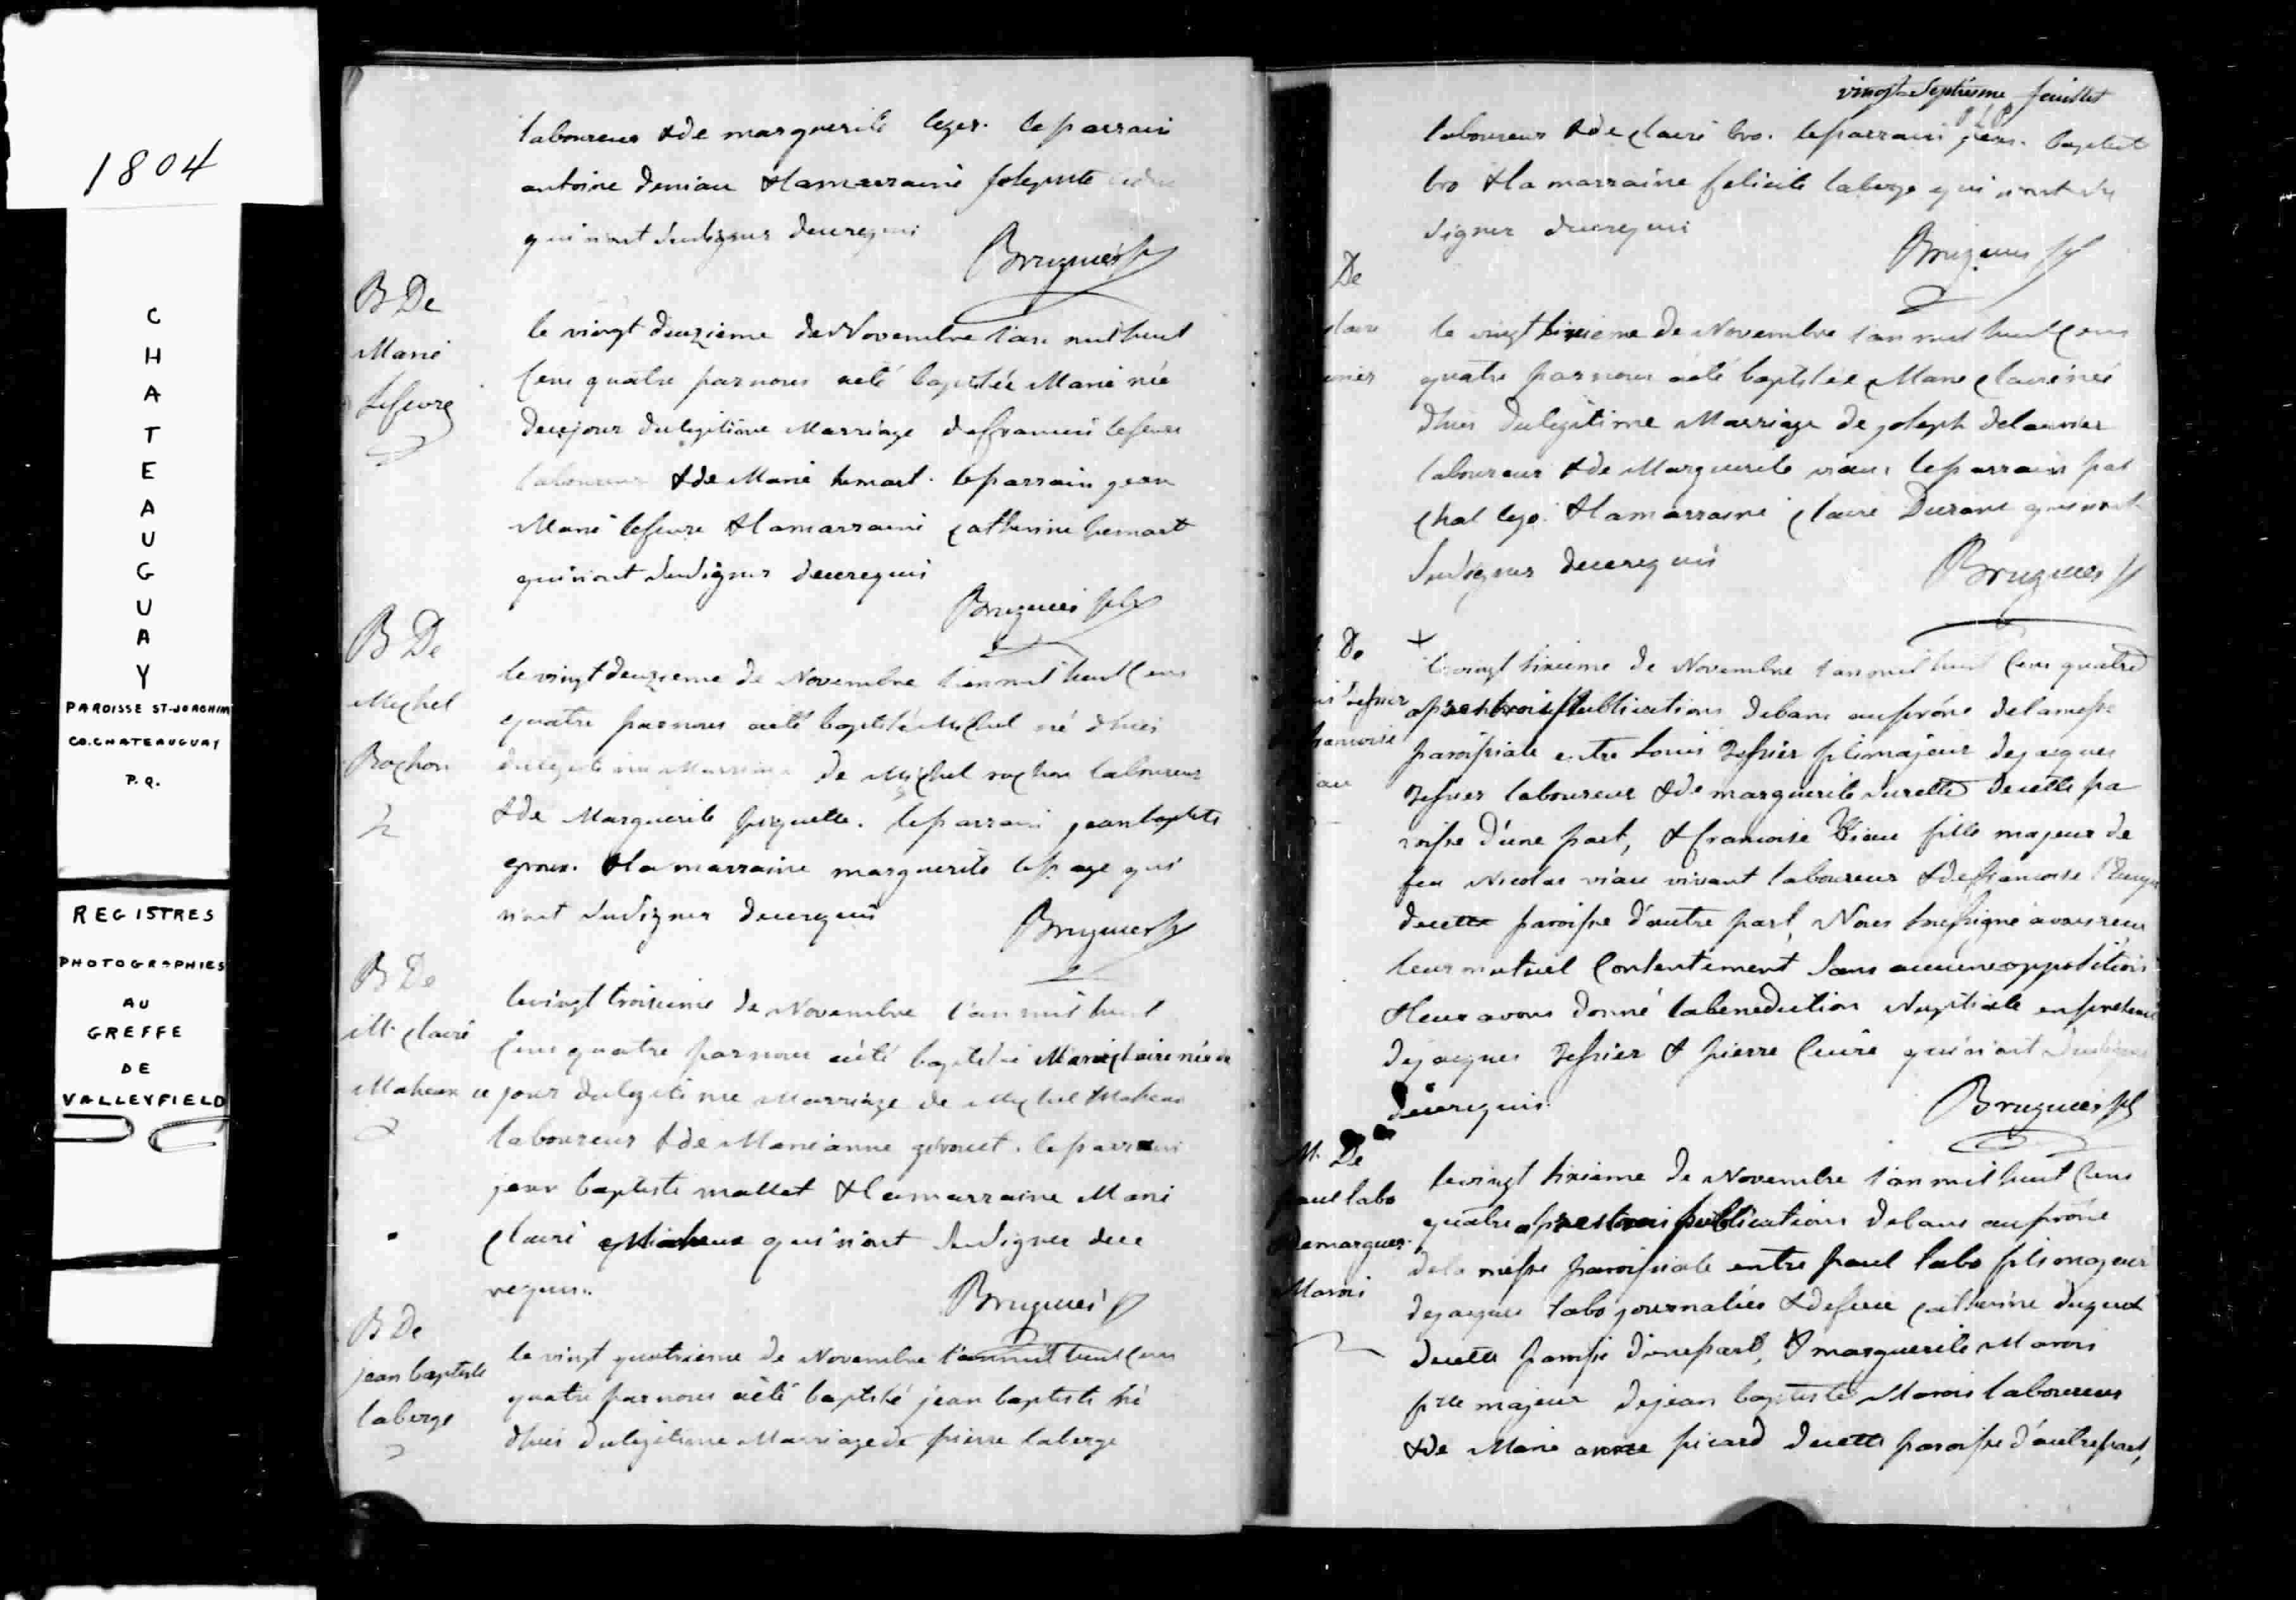 1804
CHATEAUGUAY
PAROISSE ST-JOACHIM
CO. CHATEAUGUAY
P.Q.
REGISTRES
PHOTOGRAPHIES
AU
GREFFE
DE
VALLEYFIELD
laboureur & de marguerite leger. le parrain
antoine deniau & la marraine
qui n'ont su signer de ce requis
Bruguier ptr
B De
Marie
Lefevre
le vingt deuzieme de Novembre l'an mil huit
cens quatre par nous a été baptisée Marie née
de ce jour du legitime Marriage de francois lefevre
laboureur & de Marie hemart. le parrain jean
Marie lefevre & la marraine catherine hemart
qui n'ont su signer de ce requis
Bruguier ptr
B De
Michel
Rochon
le vingt deuzieme de Novembre l'an mil huit cens
quatre par nous a été baptisé Michel né d'hier
du legitime Marriage de Michel rochon laboureur
& de Marguerite . le parrain jean baptiste
groux. & la marraine marguerite lepage qui
n'ont su signer de ce requis
Bruguier ptr
B De
M. claire
Maheux
le vingt troisieme de Novembre l'an mil huit
cens quatre par nous a été baptisée Marie claire née de
ce jour du legitime Marriage de Michel Maheux
laboureur & de Marie anne girouet. le parrain
jean baptiste mallet & la marraine Marie
claire Maheux qui n'ont su signer de ce
requis.
Bruguier ptr
B De
jean baptiste
laberge
le vingt quatrieme de Novembre l'an mil huit cens
quatre par nous a été baptisé jean baptiste né
d'hier du legitime Marriage de pierre laberge
vingt-septieme feuillet
laboureur & de claire bro. le parrain jean baptiste
bro & la marraine felicite laberge qui n'ont su
signer de ce requis
Bruguier ptr
De
claire
le vingt sixieme de Novembre l'an mil huit cens
quatre par nous a été baptisée Marie claire née
d'hier du legitime Marriage de joseph delaunier
laboureur & de Marguerite viau. le parrain pas
chal & la marraine claire Durand qui n'ont
su signer de ce requis
Bruguier ptr
De
+
le vingt sixieme de Novembre l'an mil huit cens quatre
apres trois publications de bans au prône de la messe
paroissiale entre Louis tessier fils majeur de jacques
tessier laboureur & de marguerite surette de cette pa
roisse d'une part, & francoise Viau fille majeur de
feu Nicolas viau vivant laboureur & de francoise
de cette paroisse d'autre part, Nous soussigné avons recu
leur mutuel consentement sans aucune opposition
& leur avons donné la benediction Nuptiale en presence
de jacques tessier & pierre qui n'ont su signer
de ce requis.
Bruguier ptr
M. De
paul labo
& de margueri
Marois
le vingt sixieme de Novembre l'an mil huit cens
quatre apres trois publications de bans au prône
de la messe paroissiale entre paul labo fils majeur
de jacques labo journalier & de feue catherine
de cette paroisse d'une part, & marguerite Marois
fille majeur de jean baptiste Marois laboureur
& de Marie anne picard de cette paroisse d'autre part,